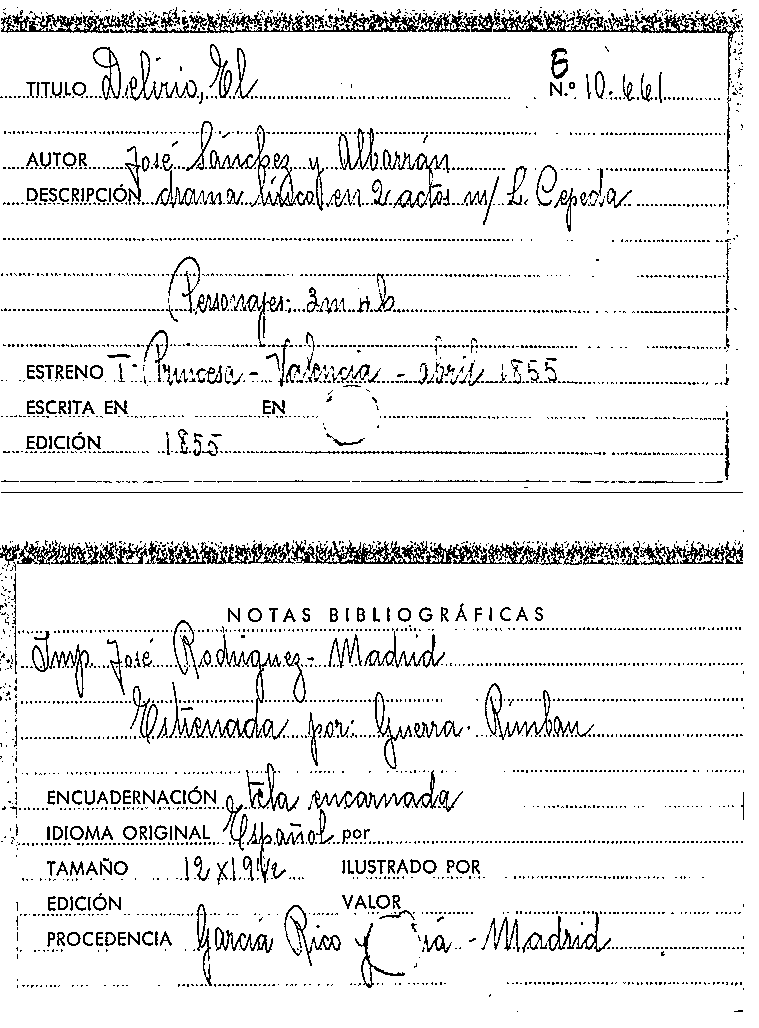 E
TITULO Delirio, El N.º 10.661
AUTOR José Sánchez y Albarrán
DESCRIPCIÓN drama lírico en 2 actos m/ L. Cepeda
Personajes: 3m 4h
ESTRENO T. Princesa - Valencia - abril 1855
ESCRITA EN EN
EDICIÓN 1855
NOTAS BIBLIOGRÁFICAS
Imp. José Rodríguez - Madrid
Estrenada por: Guerra - Rimbau
ENCUADERNACIÓN tela encarnada
IDIOMA ORIGINAL Español por
TAMAÑO 12x19 1/2 ILUSTRADO POR
EDICIÓN VALOR
PROCEDENCIA García Rico y - Madrid